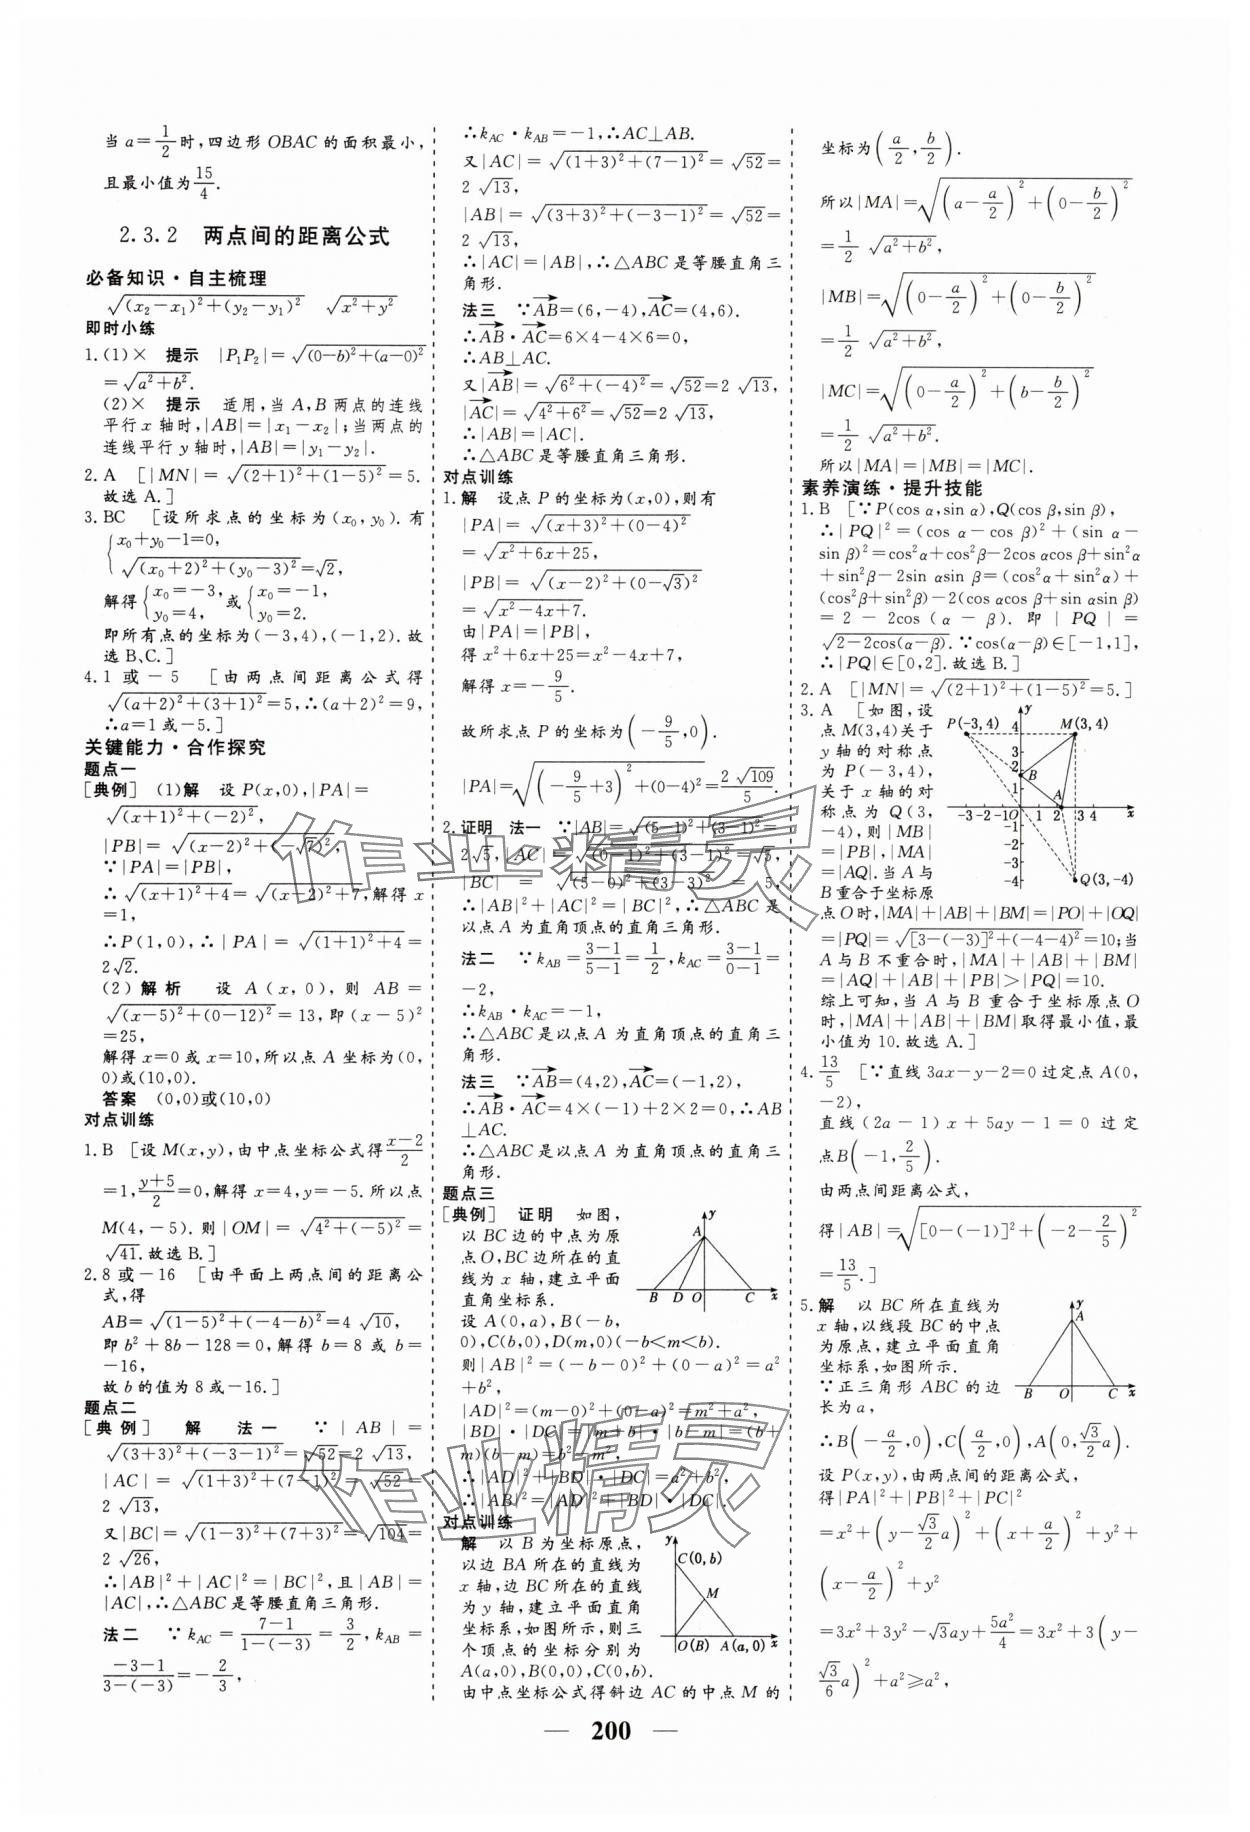 当 a=1/2 时,四边形 OBAC 的面积最小,
且最小值为 15/4.
2.3.2 两点间的距离公式
必备知识·自主梳理
√((x₂-x₁)²+(y₂-y₁)²) √(x²+y²)
即时小练
1.(1)× 提示 |P₁P₂|=√((0-b)²+(a-0)²)
=√(a²+b²).
(2)× 提示 适用,当 A,B 两点的连线
平行 x 轴时,|AB|=|x₁-x₂|;当两点的
连线平行 y 轴时,|AB|=|y₁-y₂|.
2.A [|MN|=√((2+1)²+(1-5)²)=5.
故选 A.]
3.BC [设所求点的坐标为(x₀,y₀).有
{x₀+y₀-1=0,
√((x₀+2)²+(y₀-3)²)=√2,
解得{x₀=-3, y₀=4, 或{x₀=-1, y₀=2.
即所有点的坐标为(-3,4),(-1,2).故
选 B、C.]
4.1 或 -5 [由两点间距离公式得
√((a+2)²+(3+1)²)=5,∴(a+2)²=9,
∴a=1 或-5.]
关键能力·合作探究
题点一
[典例] (1)解 设 P(x,0),|PA|=
√((x+1)²+(-2)²),
|PB|=√((x-2)²+(-√7)²),
∵|PA|=|PB|,
∴√((x+1)²+4)=√((x-2)²+7),解得 x
=1,
∴P(1,0),∴|PA|=√((1+1)²+4)=
2√2.
(2)解析 设 A(x,0),则 AB=
√((x-5)²+(0-12)²)=13,即(x-5)²
=25,
解得 x=0 或 x=10,所以点 A 坐标为(0,
0)或(10,0).
答案 (0,0)或(10,0)
对点训练
1.B [设 M(x,y),由中点坐标公式得 (x-2)/2
=1,(y+5)/2=0,解得 x=4,y=-5.所以点
M(4,-5).则|OM|=√(4²+(-5)²)=
√41.故选 B.]
2.8 或-16 [由平面上两点间的距离公
式,得
AB=√((1-5)²+(-4-b)²)=4√10,
即 b²+8b-128=0,解得 b=8 或 b=
-16,
故 b 的值为 8 或-16.]
题点二
[典例] 解 法一 ∵|AB|=
√((3+3)²+(-3-1)²)=√52=2√13,
|AC|=√((1+3)²+(7-1)²)=√52=
2√13,
又|BC|=√((1-3)²+(7+3)²)=√104=
2√26,
∴|AB|²+|AC|²=|BC|²,且|AB|=
|AC|,∴△ABC 是等腰直角三角形.
法二 ∵k_AC=(7-1)/(1-(-3))=3/2,k_AB=
(-3-1)/(3-(-3))=-2/3,
∴k_AC·k_AB=-1,∴AC⊥AB.
又|AC|=√((1+3)²+(7-1)²)=√52=
2√13,
|AB|=√((3+3)²+(-3-1)²)=√52=
2√13,
∴|AC|=|AB|,∴△ABC 是等腰直角三
角形.
法三 ∵→AB=(6,-4),→AC=(4,6).
∴→AB·→AC=6×4-4×6=0,
∴AB⊥AC.
又|→AB|=√(6²+(-4)²)=√52=2√13,
|→AC|=√(4²+6²)=√52=2√13,
∴|AB|=|AC|.
∴△ABC 是等腰直角三角形.
对点训练
1.解 设点 P 的坐标为(x,0),则有
|PA|=√((x+3)²+(0-4)²)
=√(x²+6x+25),
|PB|=√((x-2)²+(0-√3)²)
=√(x²-4x+7).
由|PA|=|PB|,
得 x²+6x+25=x²-4x+7,
解得 x=-9/5.
故所求点 P 的坐标为(-9/5,0).
|PA|=√((-9/5+3)²+(0-4)²)=2√109/5.
2.证明 法一 ∵|AB|=√((5-1)²+(3-1)²)=
2√5,|AC|=√((0-1)²+(3-1)²)=√5,
|BC|=√((5-0)²+(3-3)²)=5,
∴|AB|²+|AC|²=|BC|²,∴△ABC 是
以点 A 为直角顶点的直角三角形.
法二 ∵k_AB=(3-1)/(5-1)=1/2,k_AC=(3-1)/(0-1)=
-2,
∴k_AB·k_AC=-1,
∴△ABC 是以点 A 为直角顶点的直角三
角形.
法三 ∵→AB=(4,2),→AC=(-1,2),
∴→AB·→AC=4×(-1)+2×2=0,∴AB
⊥AC.
∴△ABC 是以点 A 为直角顶点的直角三
角形.
题点三
[典例] 证明 如图,
以 BC 边的中点为原
点 O,BC 边所在的直
线为 x 轴,建立平面
直角坐标系.
y A B D O C x
设 A(0,a),B(-b,
0),C(b,0),D(m,0)(-b<m<b).
则|AB|²=(-b-0)²+(0-a)²=a²
+b²,
|AD|²=(m-0)²+(0-a)²=m²+a²,
|BD|·|DC|=|m+b|·|b-m|=(b+
m)(b-m)=b²-m²,
∴|AD|²+|BD|·|DC|=a²+b²,
∴|AB|²=|AD|²+|BD|·|DC|.
对点训练
解 以 B 为坐标原点,
以边 BA 所在的直线为
x 轴,边 BC 所在的直线
为 y 轴,建立平面直角
坐标系,如图所示,则三
个顶点的坐标分别为
A(a,0),B(0,0),C(0,b).
y C(0,b) M O(B) A(a,0) x
由中点坐标公式得斜边 AC 的中点 M 的
坐标为(a/2,b/2).
所以|MA|=√((a-a/2)²+(0-b/2)²)
=1/2 √(a²+b²),
|MB|=√((0-a/2)²+(0-b/2)²)
=1/2 √(a²+b²),
|MC|=√((0-a/2)²+(b-b/2)²)
=1/2 √(a²+b²).
所以|MA|=|MB|=|MC|.
素养演练·提升技能
1.B [∵P(cos α,sin α),Q(cos β,sin β),
∴|PQ|²=(cos α-cos β)²+(sin α-
sin β)²=cos²α+cos²β-2cos αcos β+sin²α
+sin²β-2sin αsin β=(cos²α+sin²α)+
(cos²β+sin²β)-2(cos αcos β+sin αsin β)
=2-2cos(α-β).即|PQ|=
√(2-2cos(α-β)).∵cos(α-β)∈[-1,1],
∴|PQ|∈[0,2].故选 B.]
2.A [|MN|=√((2+1)²+(1-5)²)=5.]
3.A [如图,设
点 M(3,4)关于
y 轴的对称点
为 P(-3,4),
关于 x 轴的对
称点为 Q(3,
-4),则|MB|
=|PB|,|MA|
=|AQ|.当 A 与
B 重合于坐标原
P(-3,4) 4 y M(3,4)
3
2 B
1 A
-3 -2 -1 O 1 2 3 4 x
-1
-2
-3
-4 Q(3,-4)
点 O 时,|MA|+|AB|+|BM|=|PO|+|OQ|
=|PQ|=√([3-(-3)]²+(-4-4)²)=10;当
A 与 B 不重合时,|MA|+|AB|+|BM|
=|AQ|+|AB|+|PB|>|PQ|=10.
综上可知,当 A 与 B 重合于坐标原点 O
时,|MA|+|AB|+|BM|取得最小值,最
小值为 10.故选 A.]
4.13/5 [∵直线 3ax-y-2=0 过定点 A(0,
-2),
直线(2a-1)x+5ay-1=0 过定
点 B(-1,2/5).
由两点间距离公式,
得|AB|=√([0-(-1)]²+(-2-2/5)²)
=13/5.]
5.解 以 BC 所在直线为
x 轴,以线段 BC 的中点
为原点,建立平面直角
坐标系,如图所示.
∵正三角形 ABC 的边
长为 a,
y A B O C x
∴B(-a/2,0),C(a/2,0),A(0,√3/2 a).
设 P(x,y),由两点间的距离公式,
得|PA|²+|PB|²+|PC|²
=x²+(y-√3/2 a)²+(x+a/2)²+y²+
(x-a/2)²+y²
=3x²+3y²-√3ay+5a²/4=3x²+3(y-
√3/6 a)²+a²≥a²,
— 200 —
作业精灵
作业精灵